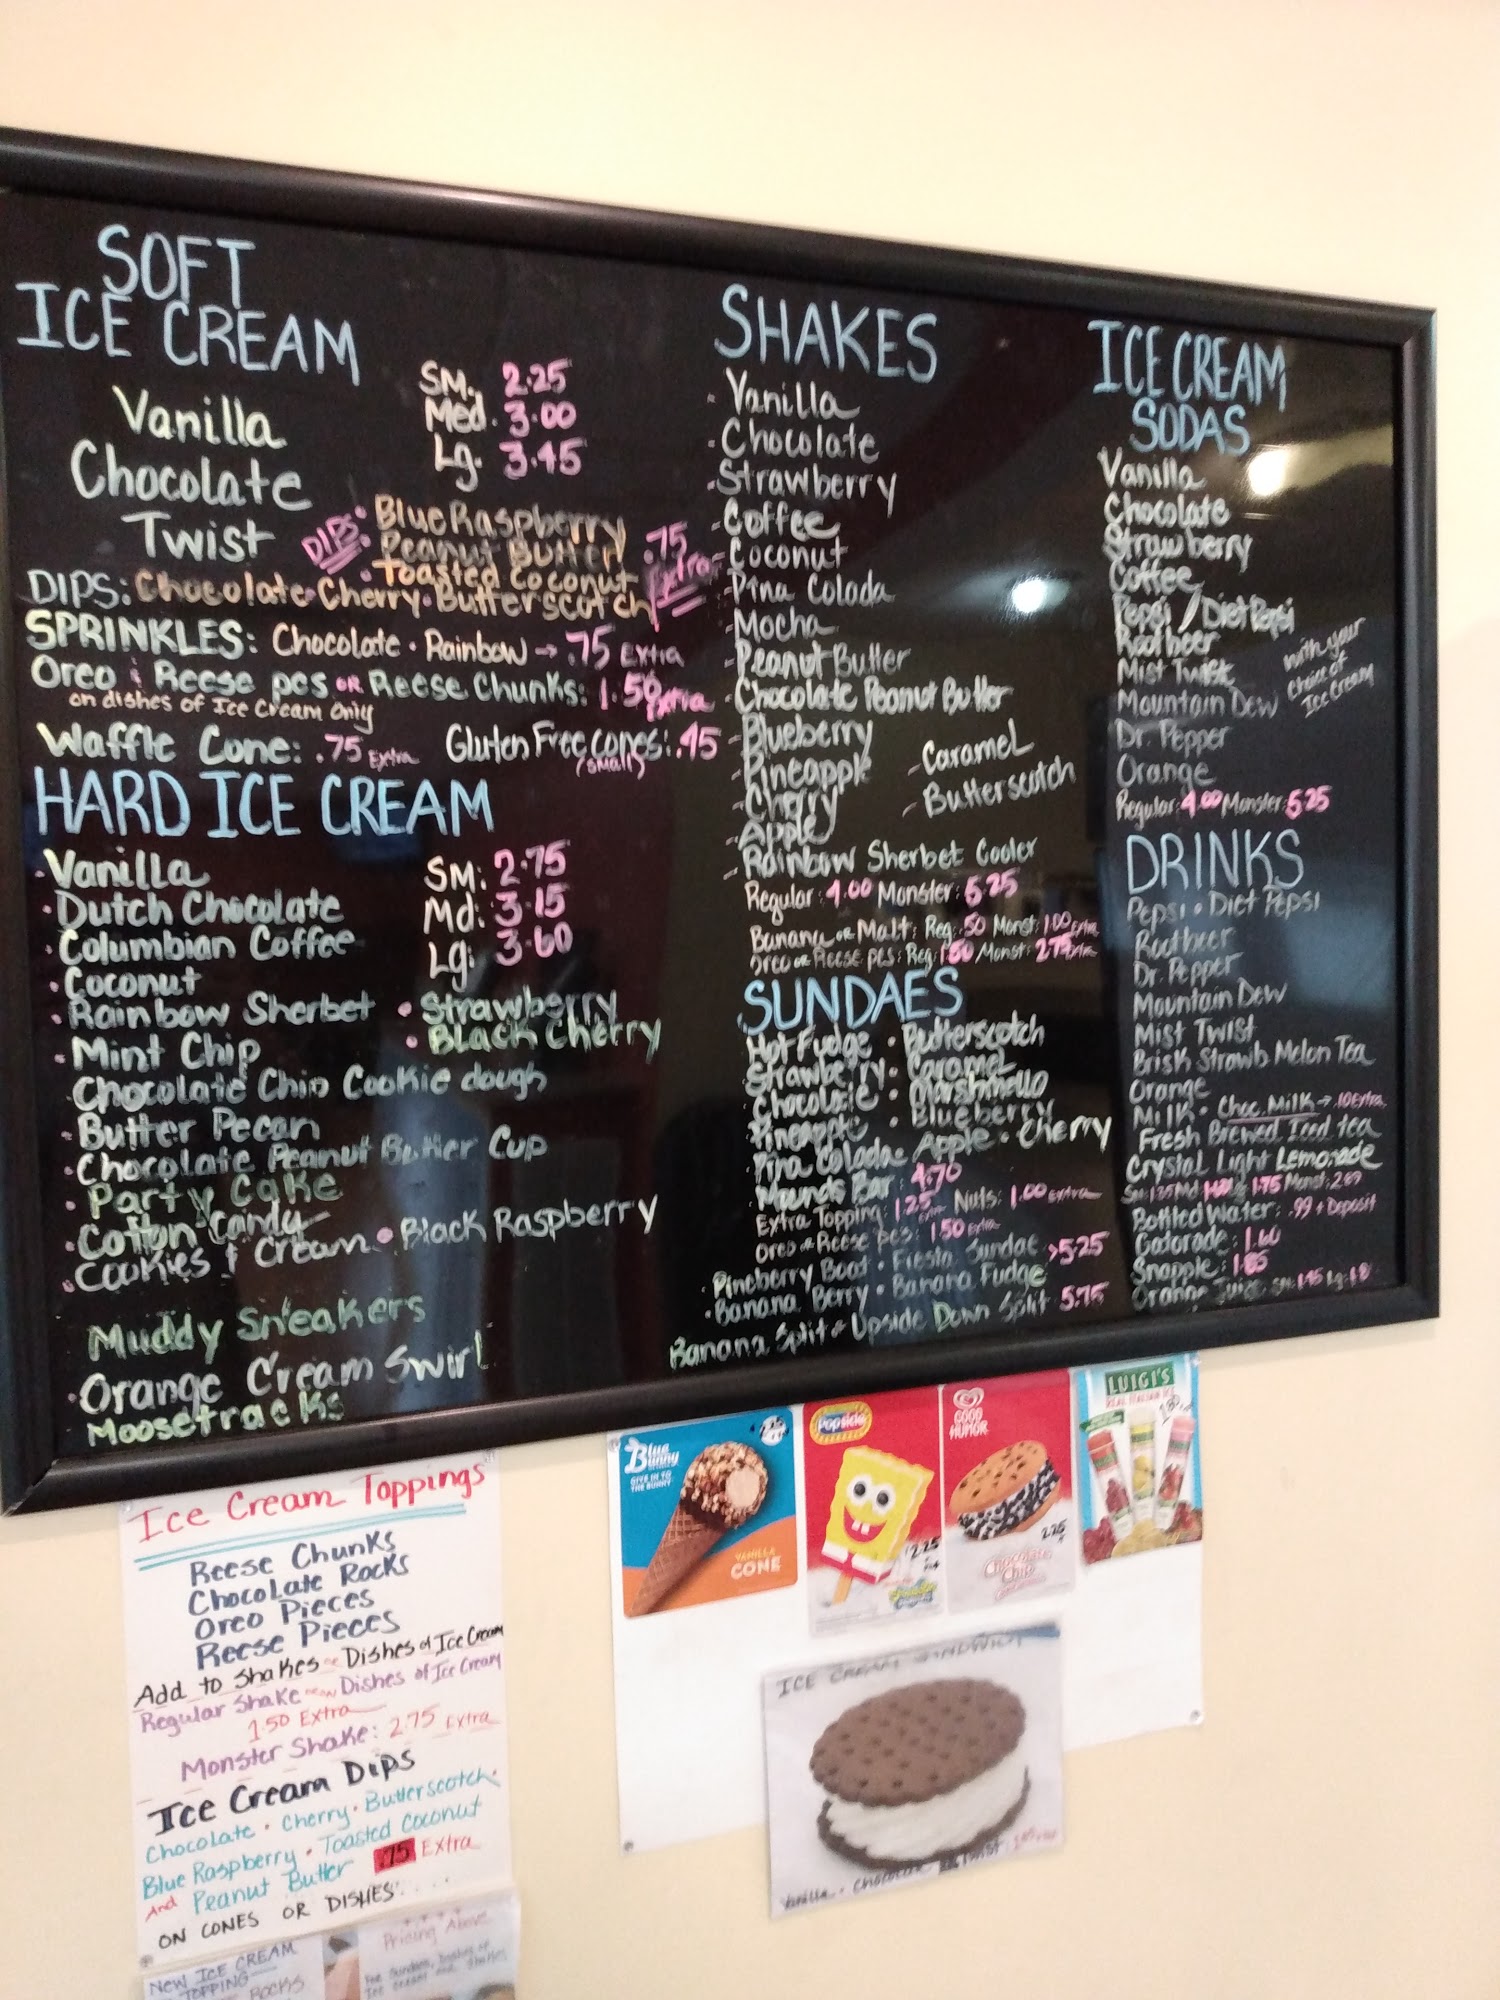 SOFT
ICE CREAM
Vanilla
Chocolate
Twist
SM. 2.25
Med. 3.00
Lg. 3.45
DIPS: Blue Raspberry
Peanut Butter
Toasted Coconut
.75 Extra
DIPS: Chocolate • Cherry • Butterscotch
SPRINKLES: Chocolate • Rainbow → .75 Extra
Oreo & Reese pcs or Reese Chunks: 1.50 Extra
on dishes of Ice Cream Only
Waffle Cone: .75 Extra Gluten Free Cones: .45
(small)
HARD ICE CREAM
• Vanilla
• Dutch Chocolate
• Columbian Coffee
• Coconut
• Rainbow Sherbet • Strawberry
• Mint Chip • Black Cherry
Chocolate Chip Cookie dough
• Butter Pecan
• Chocolate Peanut Butter Cup
• Party Cake
• Cotton Candy
• Cookies & Cream • Black Raspberry
Muddy Sneakers
• Orange Cream Swirl
Moosetracks
SM: 2.75
Md: 3.15
Lg: 3.60
SHAKES
- Vanilla
- Chocolate
- Strawberry
- Coffee
- Coconut
- Pina Colada
- Mocha
- Peanut Butter
- Chocolate Peanut Butter
- Blueberry
- Pineapple
- Cherry
- Apple
- Caramel
- Butterscotch
- Rainbow Sherbet Cooler
Regular: 4.00 Monster: 5.25
Banana or Malt: Reg: .50 Monst: 1.00 Extra
Oreo or Reese pcs: Reg: 1.50 Monst: 2.75 Extra
SUNDAES
Hot Fudge • Butterscotch
Strawberry • Caramel
Chocolate • Marshmello
Pineapple • Blueberry
Pina Colada • Apple • Cherry
Mounds Bar: 4.70
Extra Topping: 1.25 Extra Nuts: 1.00 Extra
Oreo or Reese pcs: 1.50 Extra
• Pineberry Boat • Fiesta Sundae
• Banana Berry • Banana Fudge >5.25
Banana Split & Upside Down Split 5.75
ICE CREAM
SODAS
Vanilla
Chocolate
Strawberry
Coffee
Pepsi / Diet Pepsi
Rootbeer
Mist Twist
Mountain Dew
Dr. Pepper
Orange
with your
choice of
Ice Cream
Regular: 4.00 Monster: 5.25
DRINKS
Pepsi • Diet Pepsi
Rootbeer
Dr. Pepper
Mountain Dew
Mist Twist
Brisk Strawb Melon Tea
Orange
Milk • Choc. Milk → .10 Extra
Fresh Brewed Iced tea
Crystal Light Lemonade
Bottled Water: .99 + Deposit
Gatorade: 1.60
Snapple: 1.85
Orange Juice
Ice Cream Toppings
Reese Chunks
Chocolate Rocks
Oreo Pieces
Reese Pieces
Add to Shakes or Dishes of Ice Cream
Regular Shake Dishes of Ice Cream
1.50 Extra
Monster Shake: 2.75 Extra
Ice Cream Dips
Chocolate • Cherry • Butterscotch •
Blue Raspberry • Toasted Coconut
And Peanut Butter .75 Extra
ON CONES OR DISHES....
NEW ICE CREAM
TOPPING
ROCKS
Pricing Above
For Sundaes, Dishes of
Ice cream and Shakes
Blue Bunny
GIVE IN TO
THE BUNNY
VANILLA
CONE
Popsicle
2.25
GOOD
HUMOR
2.25
Chocolate
Chip
LUIGI'S
REAL ITALIAN ICE
ICE CREAM SANDWICH
Vanilla • Chocolate or Twist